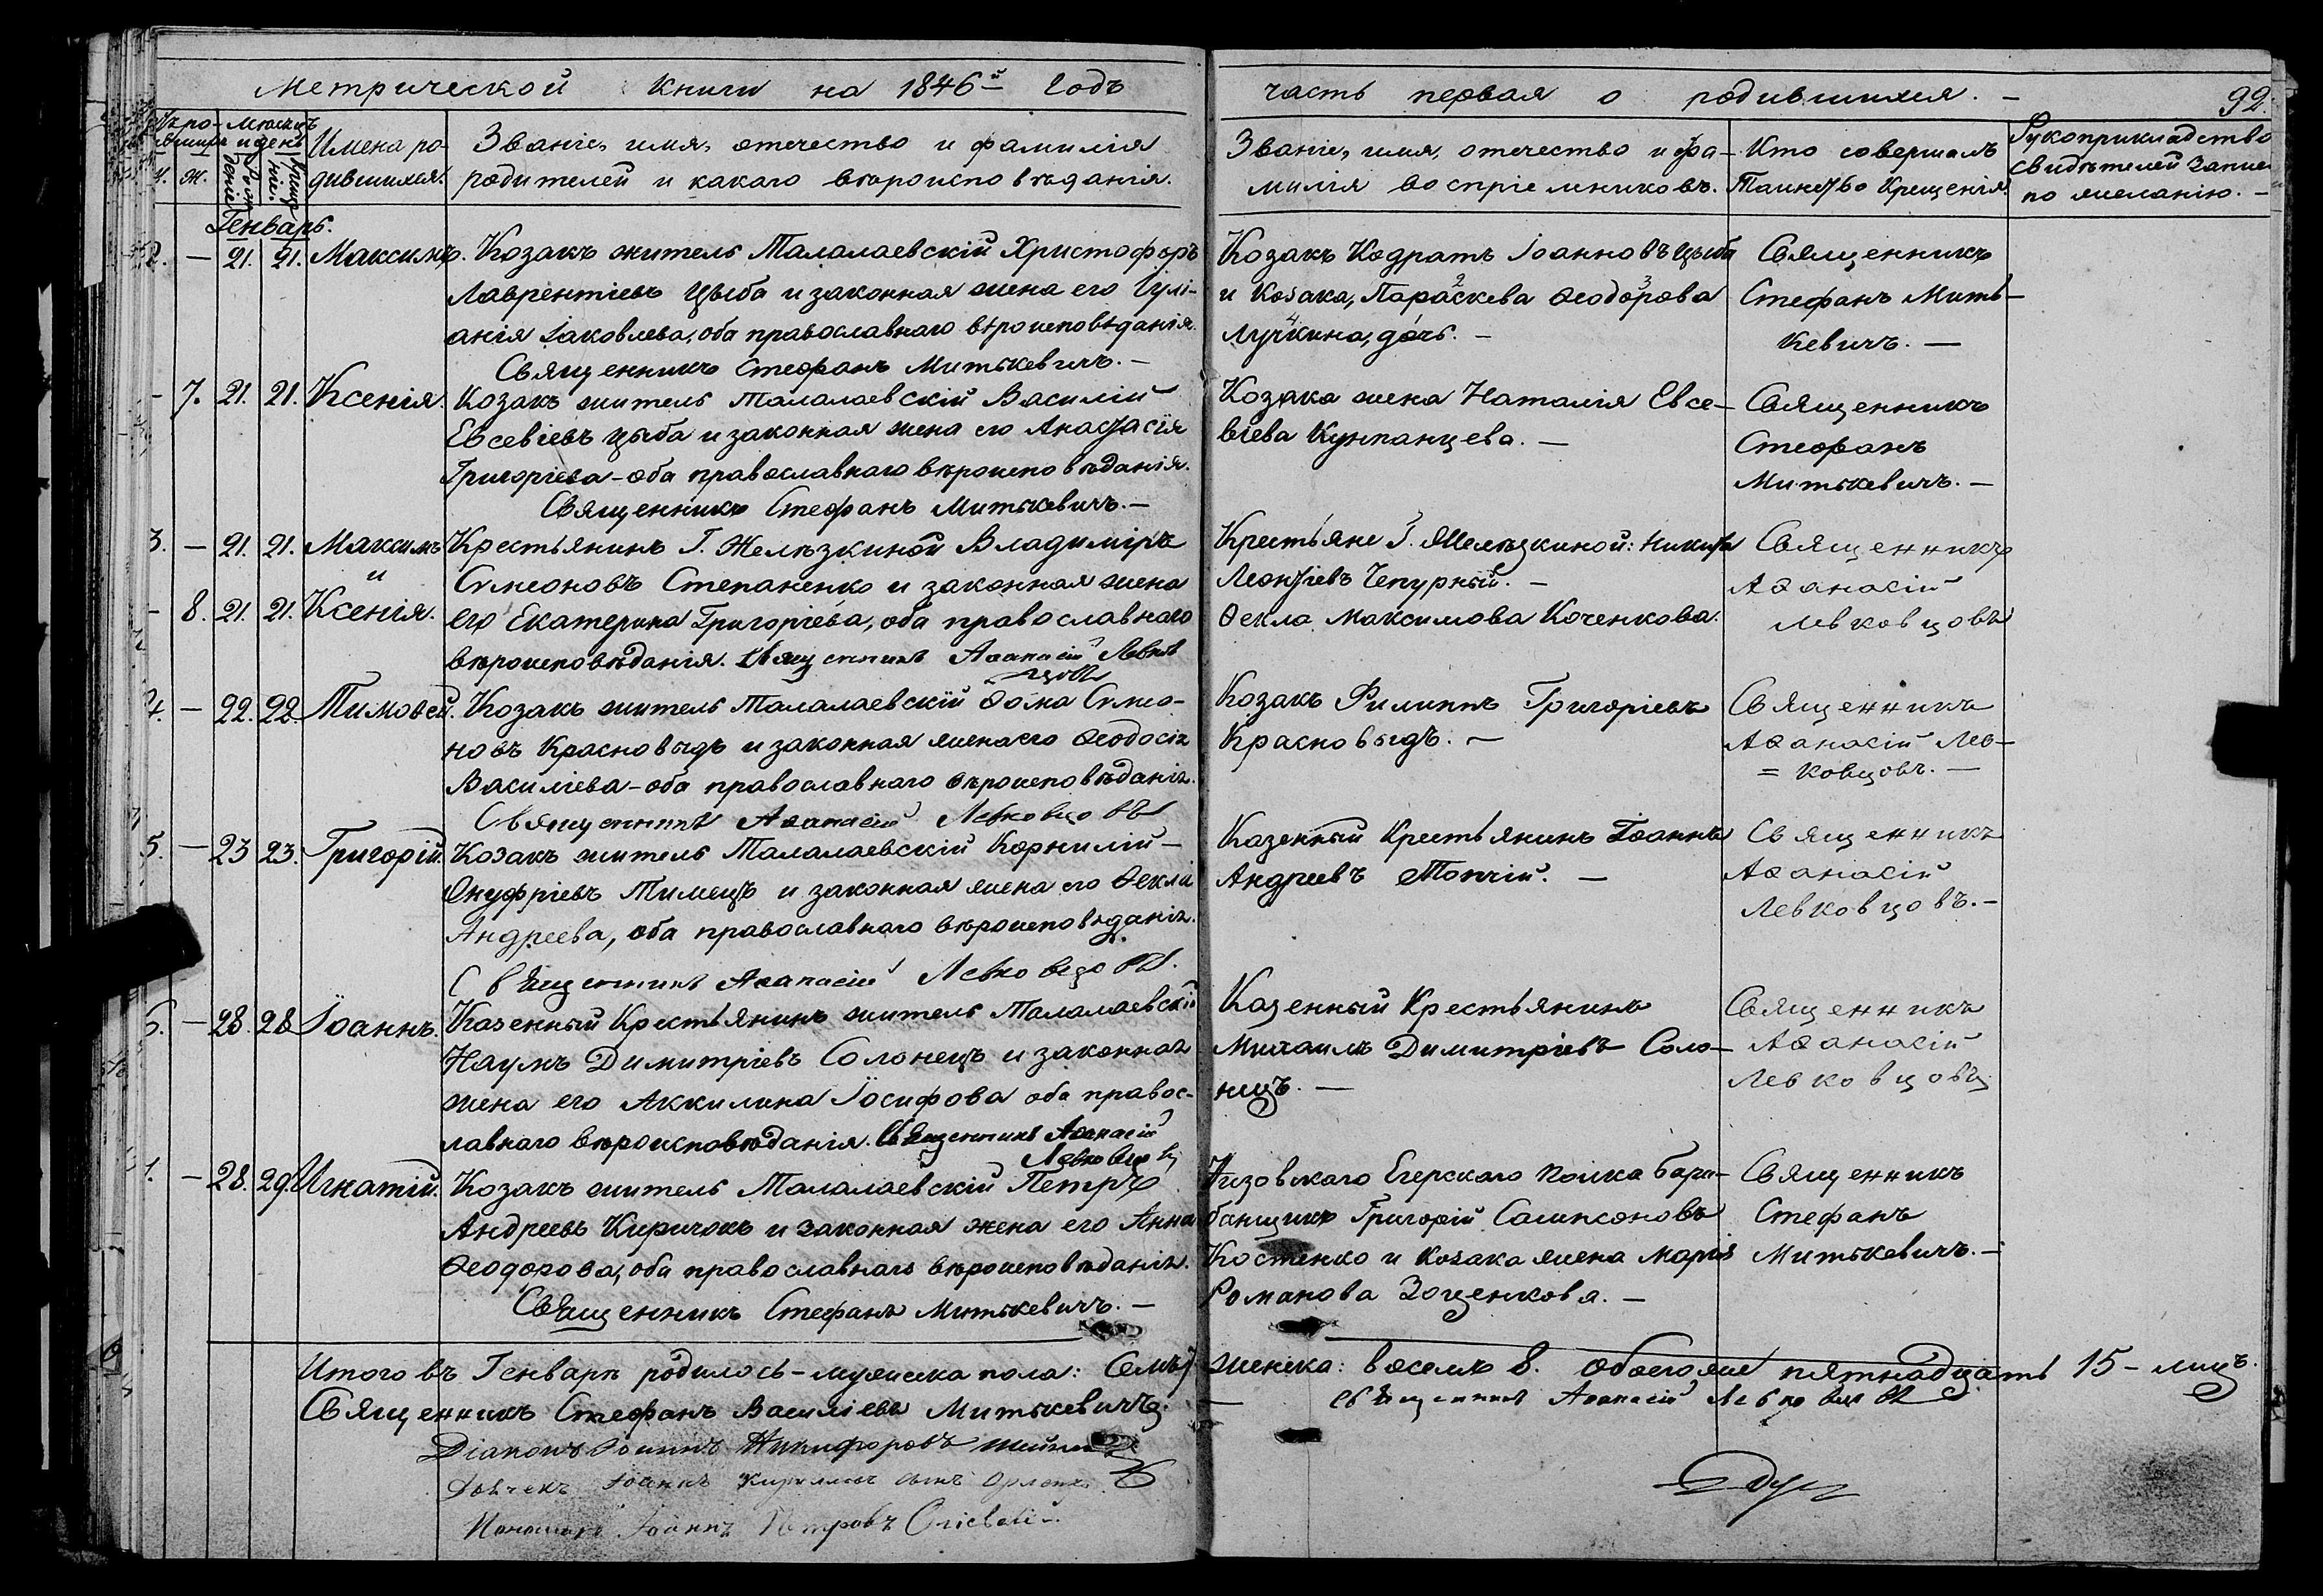 Метрической книги на 1846й Годъ
часть первая о родившихся. — 92.
Имена ро-
дившихся.
Званіе, имя, отечество и фамилія
родителей и какаго вѣроисповѣданія.
Званіе, имя, отечество и фа-
милія воспріемниковъ.
Кто совершалъ
Таинство Крещенія.
Рукоприкладство
свидѣтелей записи
по желанію. —
Генварь.
2. — 21. 21. Максимъ. Козакъ житель Малалаевскій Христофоръ
Лаврентіевъ Цыба и законная жена его Іулі-
анія Іаковлева, оба православнаго вѣроисповѣданія.
Священникъ Стефанъ Митькевичъ. —
Козакъ Кодратъ Іоанновъ Цыба
и Козака, Параскева Ѳеодорова
Лучкина, дочь. —
Священникъ
Стефанъ Мить-
кевичъ. —
- 7. 21. 21. Ксенія. Козакъ житель Малалаевскій Василій
Евсевіевъ Цыба и законная жена его Анастасія
Григоріева - оба православнаго вѣроисповѣданія.
Священникъ Стефанъ Митькевичъ. —
Козака жена Наталія Евсе-
віева Кунпанцева. —
Священникъ
Стефанъ
Митькевичъ. —
3. — 21. 21. Максимъ Крестьянинъ Г. Желѣзкиной Владиміръ
и
Сумеоновъ Степаненко и законная жена
- 8. 21. 21. Ксенія. его Екатерина Григоріева, оба православнаго
вѣроисповѣданія. Священникъ Аѳанасій Левков
цовъ
Крестьяне Г. Желѣзкиной: Никита
Леонтіевъ Чепурный. —
Ѳекла Максимова Коченкова.
Священникъ
Аѳанасій
Левковцовъ
4. — 22. 22. Тимоѳей. Козакъ житель Малалаевскій Ѳома Сумео-
новъ Красновыдъ и законная жена его Ѳеодосія
Василіева - оба православнаго вѣроисповѣданія.
Священникъ Аѳанасій Левковцовъ
Козакъ Филиппъ Григоріевъ
Красновыдъ. —
Священникъ
Аѳанасій Лев-
= ковцовъ. —
5. — 23 23. Григорій. Козакъ житель Малалаевскій Корнилій -
Онуфріевъ Тимецъ и законная жена его Ѳекла
Андреева, оба православнаго вѣроисповѣданія.
Священникъ Аѳанасій Левковцовъ.
Казенный Крестьянинъ Іоаннъ
Андреевъ Топчій. —
Священникъ
Аѳанасій
Левковцовъ. —
6. — 28. 28 Іоаннъ. Казенный Крестьянинъ житель Малалаевскій
Наумъ Димитріевъ Солонецъ и законная
жена его Аккилина Іосифова оба правос-
лавнаго вѣроисповѣданія. Священникъ Аѳанасій
Левковцовъ
Казенный Крестьянинъ
Михаилъ Димитріевъ Соло-
нецъ. —
Священникъ
Аѳанасій
Левковцовъ
— 28. 29. Игнатій. Козакъ житель Малалаевскій Петръ
Андреевъ Киричокъ и законная жена его Анна
Ѳеодорова, оба православнаго вѣроисповѣданія.
Священникъ Стефанъ Митькевичъ. —
Низовскаго Егерскаго полка бара-
банщикъ Григорій Сампсоновъ
Костенко и Козака жена Марія
Романова Зощенкова. —
Священникъ
Стефанъ
Митькевичъ. —
Итого въ Генварѣ родилось - мужеска пола: Семь 7.
женска: восемь 8. обоегоже пятнадцать 15 - лицъ.
Священникъ Стефанъ Василіевъ Митькевичъ.
Священникъ Аѳанасій Левковцовъ
Діаконъ Іоаннъ Никифоровъ
Дьячекъ Іоаннъ Кирилловъ сынъ
Пономарь Іоаннъ Петровъ